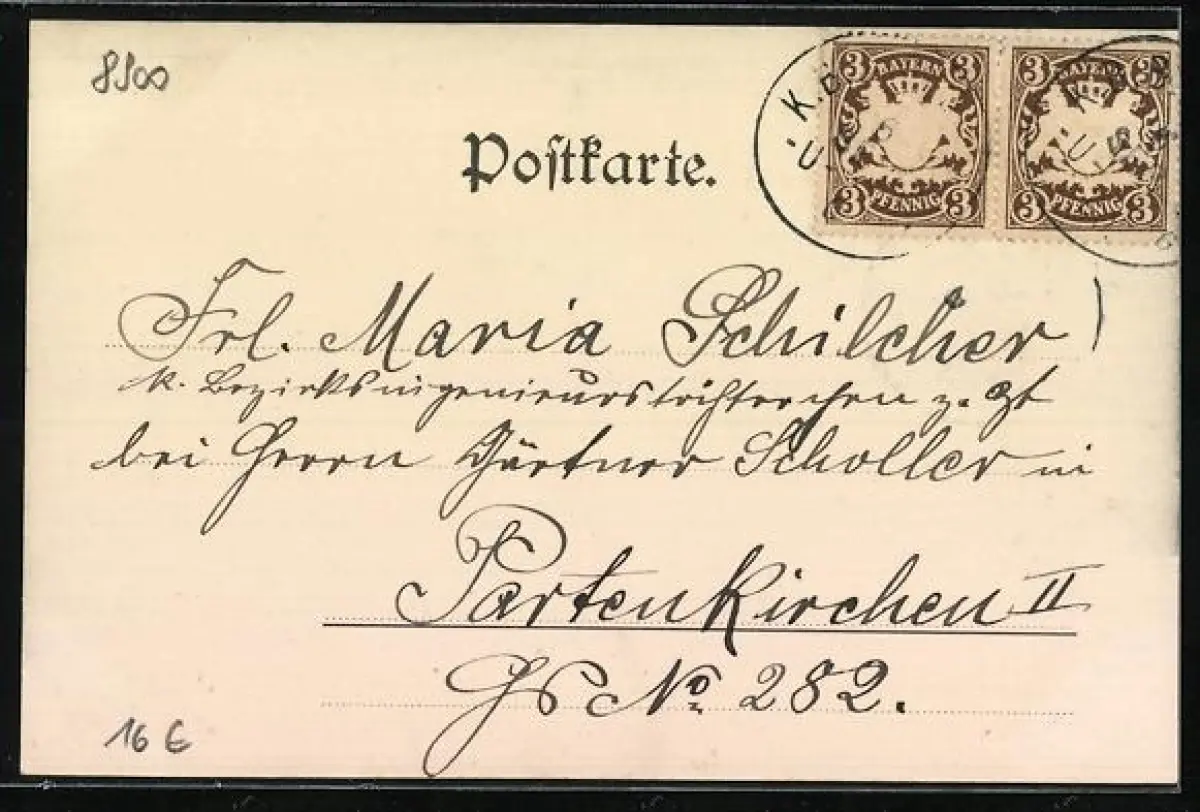 8500
3 BAYERN 3 3 BAYERN 3
3 PFENNIG 3 3 PFENNIG 3
Postkarte.
Frl. Maria Schilcher
k. Bezirksingenieurstöchterchen z. Zt
bei Herrn Gärtner Scholler in
Partenkirchen II
Hs No. 282.
16 €